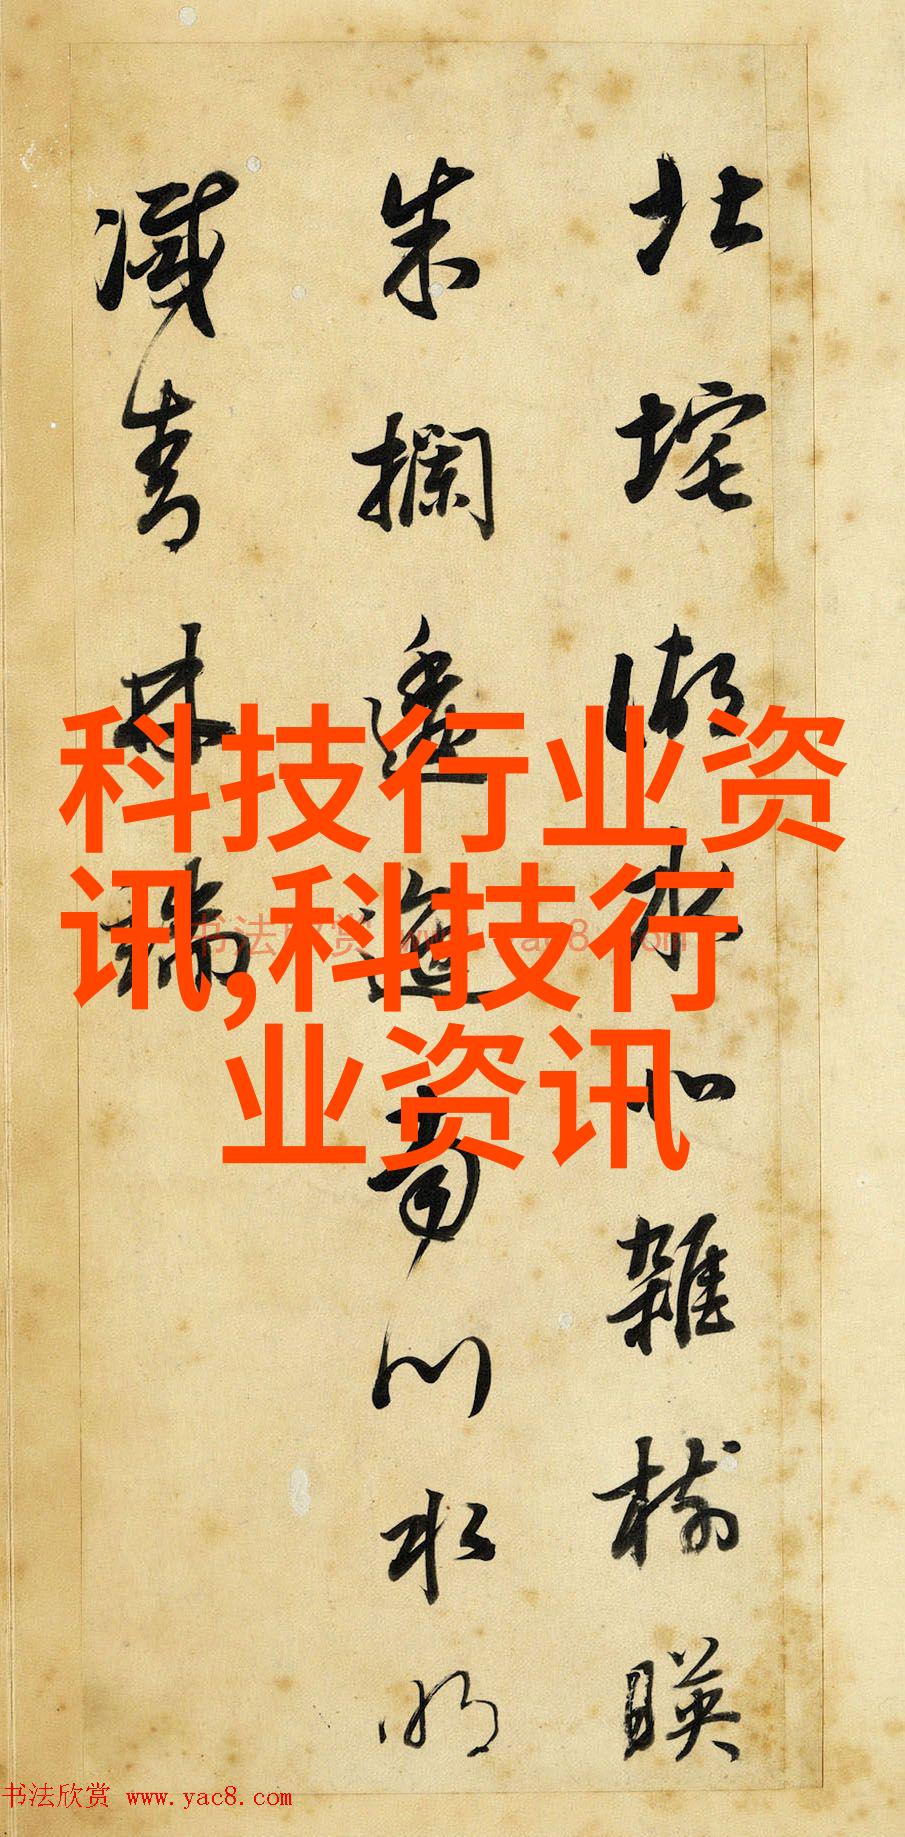 北垞湖水北雜樹暎
朱欄逶迤南川水明
滅青林端
科技行业资
讯,科技行
业资讯
书法欣赏 www.yac8.com
书法欣赏 www.yac8.com